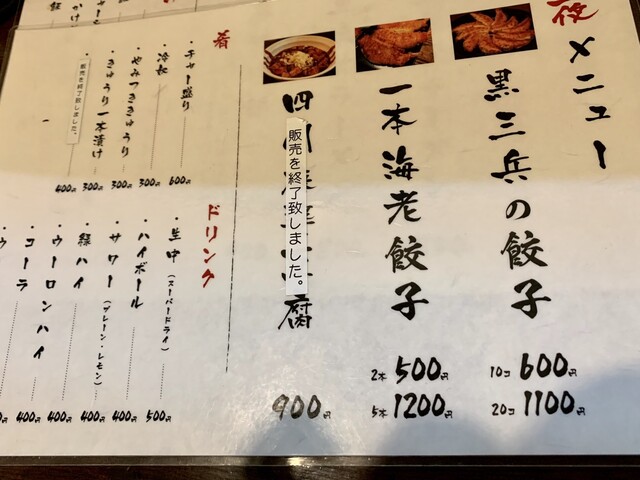 役
メニュー
黒三兵の餃子
10コ 600円
20コ 1100円
一本海老餃子
2本 500円
5本 1200円
四川 腐 900円
販売を終了致しました。
肴
・チャー盛り 600円
・冷奴 300円
・やみつききゅうり 300円
・きゅうり一本漬け 300円
・ 400円
販売を終了致しました。
ドリンク
・生中(スーパードライ) 500円
・ハイボール 400円
・サワー(プレーン・レモン) 400円
・緑ハイ 400円
・ウーロンハイ 400円
・コーラ 400円
・ウ